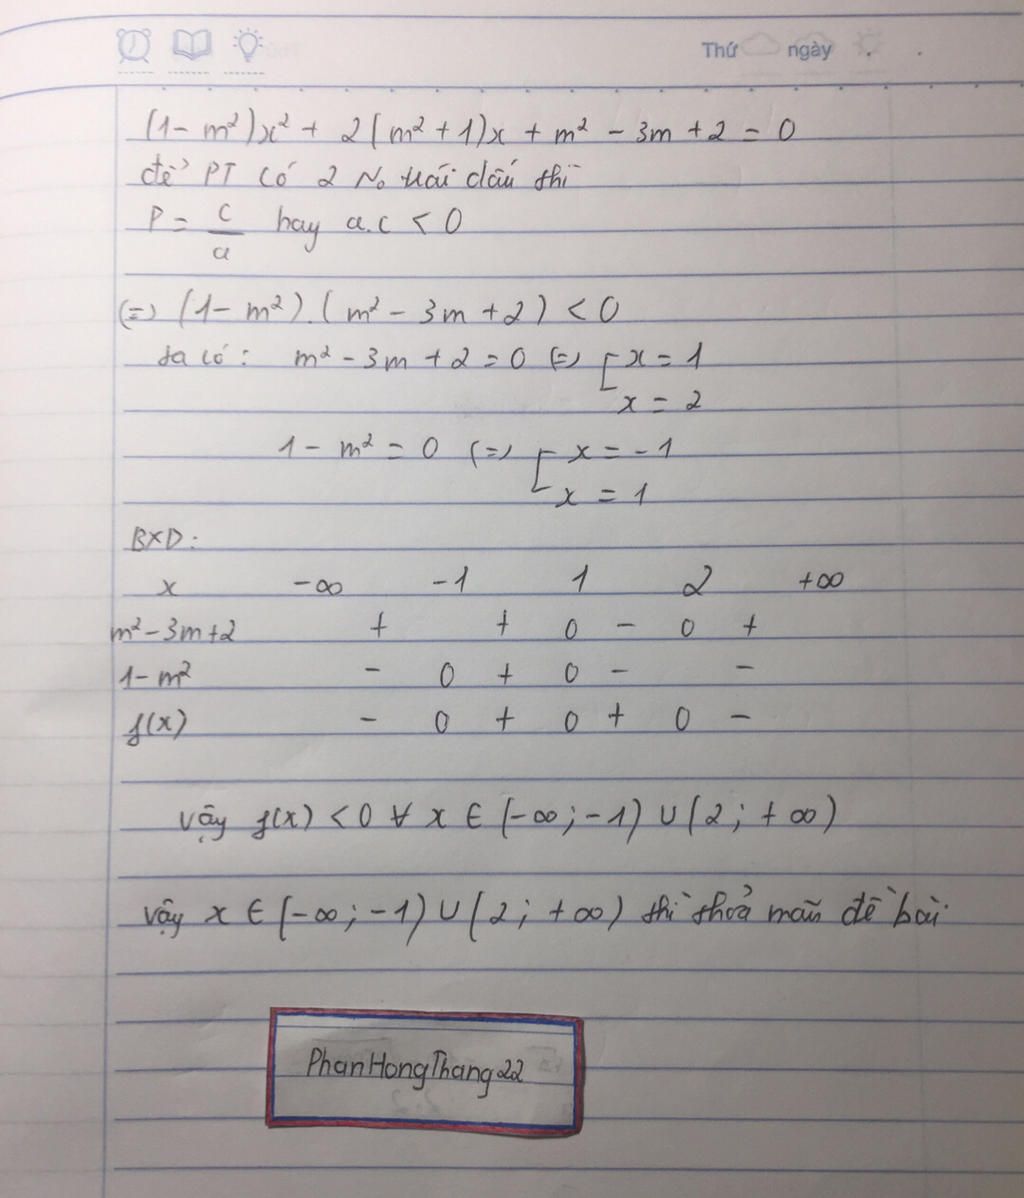 Thứ ngày
(1 - m²)x² + 2(m² + 1)x + m² - 3m + 2 = 0
để PT có 2 No trái dấu thì
P = c/a hay a.c < 0
(=) (1 - m²).(m² - 3m + 2) < 0
ta có: m² - 3m + 2 = 0 (=) [ x = 1
x = 2
1 - m² = 0 (=) [ x = -1
x = 1
BXD:
x -∞ -1 1 2 +∞
m² - 3m + 2 + + 0 - 0 +
1 - m² - 0 + 0 - -
f(x) - 0 + 0 + 0 -
vậy f(x) < 0 ∀ x ∈ (-∞; -1) ∪ (2; +∞)
vậy x ∈ (-∞; -1) ∪ (2; +∞) thì thoả mãn đề bài
PhanHongThang22